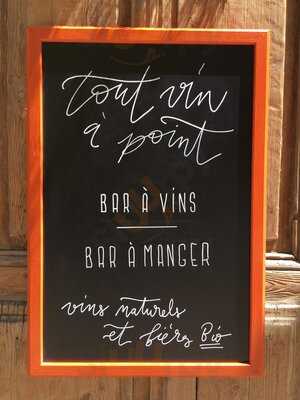 tout vin
à point
BAR À ViNS
BAR À MANGER
vins naturels
et bières Bio